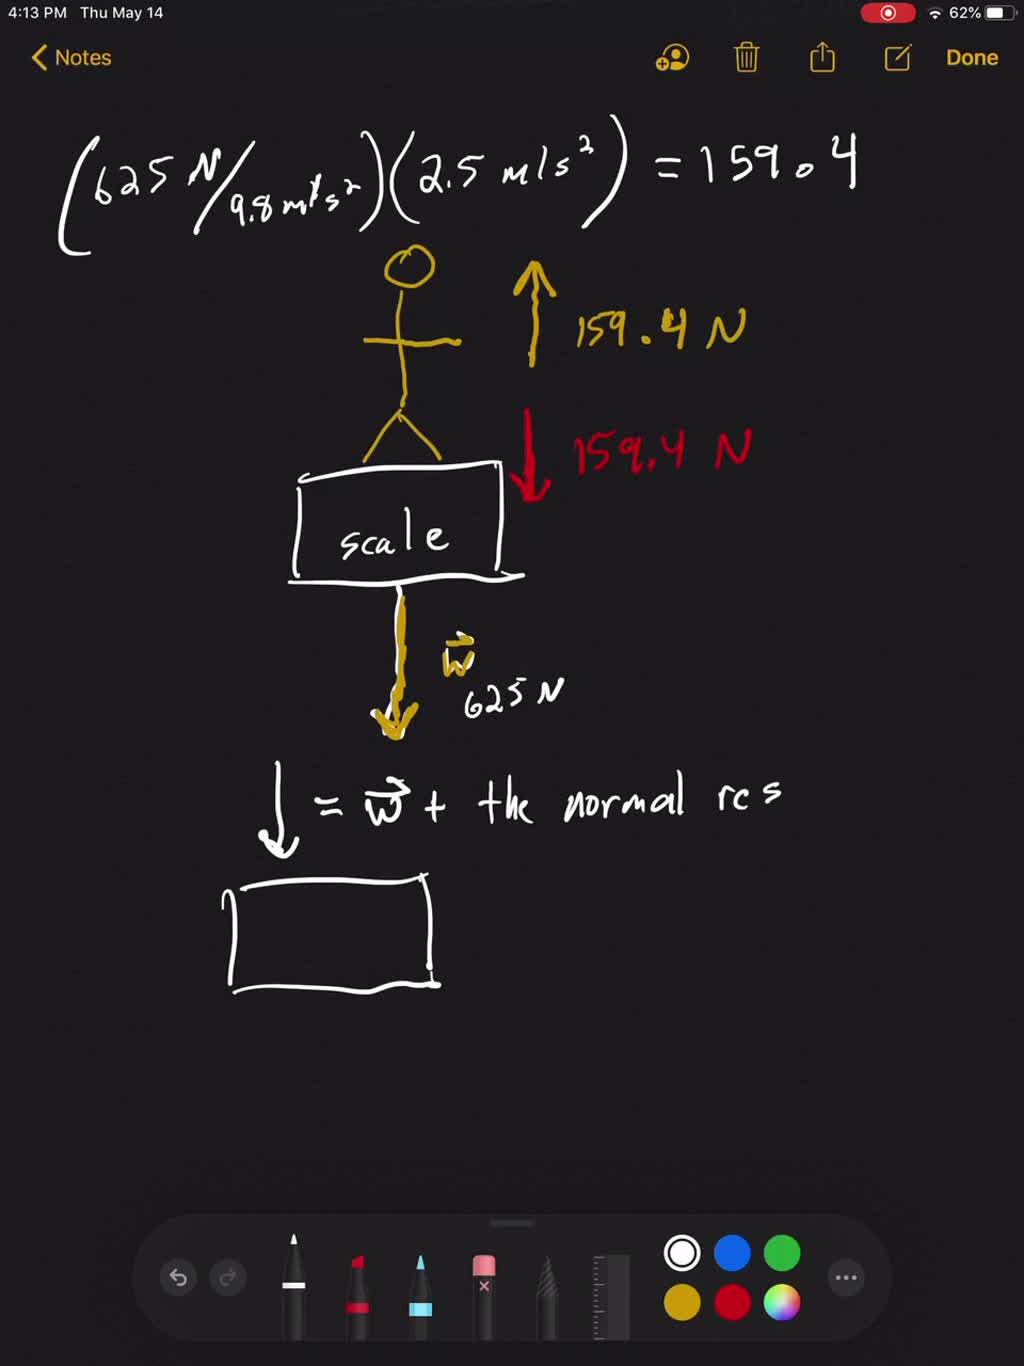 4:13 PM Thu May 14
62%
Notes
Done
(625 N/9.8 m/s²)(2.5 m/s²) = 159.4
159.4 N
159.4 N
scale
w
625 N
= w + the normal res